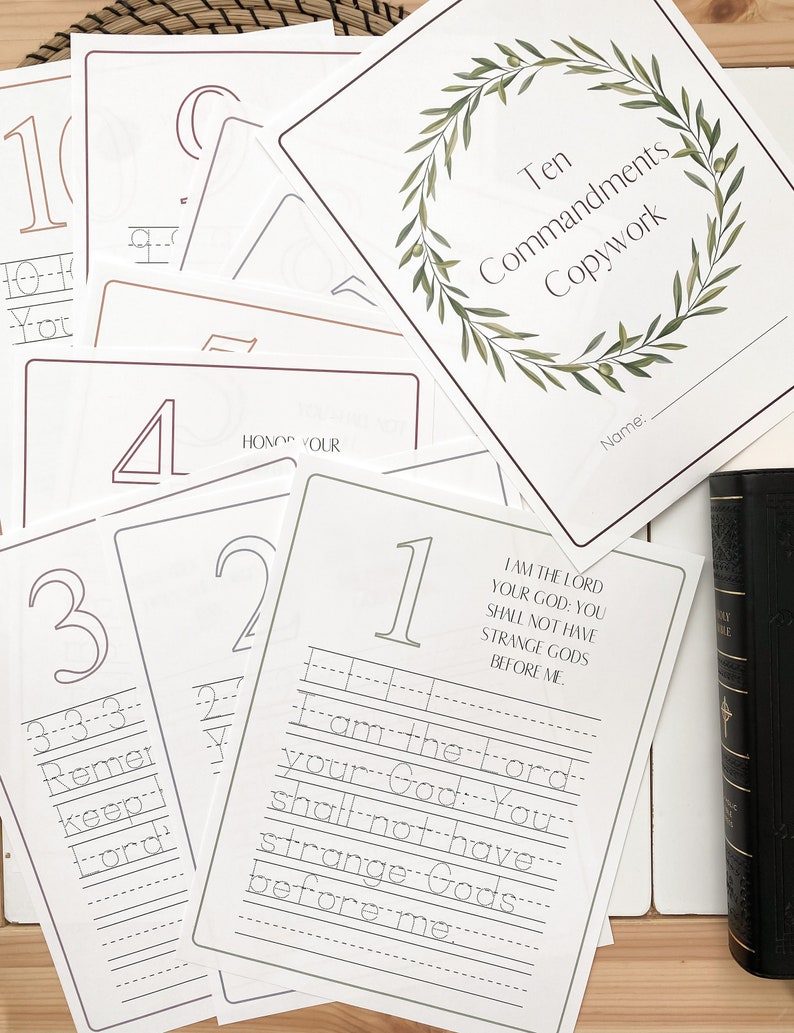 Ten
Commandments
Copywork
Name:
10
10-10
You
9
9 9
7
4
HONOR YOUR
3
3 3 3
Remem
keep t
Lord's
2
2
Y
1
I AM THE LORD
YOUR GOD: YOU
SHALL NOT HAVE
STRANGE GODS
BEFORE ME.
1 1 1 1
I am the Lord
your God: You
shall not have
strange Gods
before me.
HOLY
BIBLE